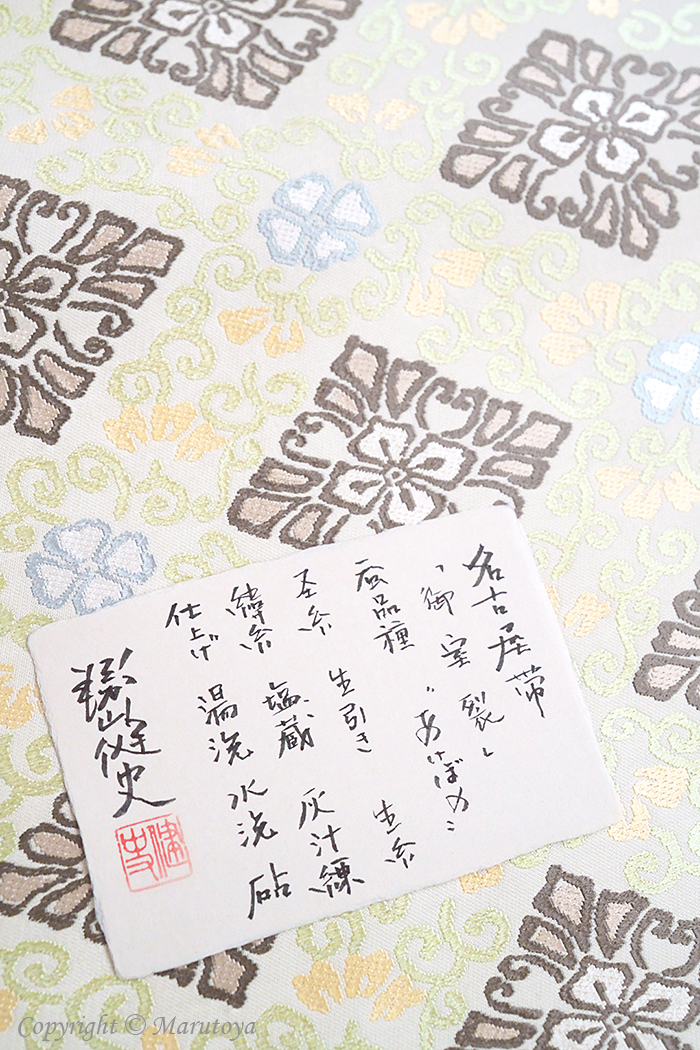 名古屋帯
「御室裂」
蚕品種 〝あけぼの〟
圣糸 生引き 生糸
緯糸 塩蔵 灰汁練
仕上げ 湯洗 水洗 砧
勝山健史
健史
Copyright © Marutoya